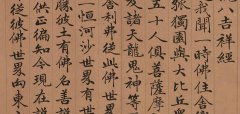 吉祥經
我聞一時佛住舍
獨園與大比丘眾
五十人俱菩薩摩
及諸天龍鬼神等
舍利弗從此佛世
一恒河沙世界有
勝彼土有佛名善說
供正徧知今現在說
從彼佛世界向東